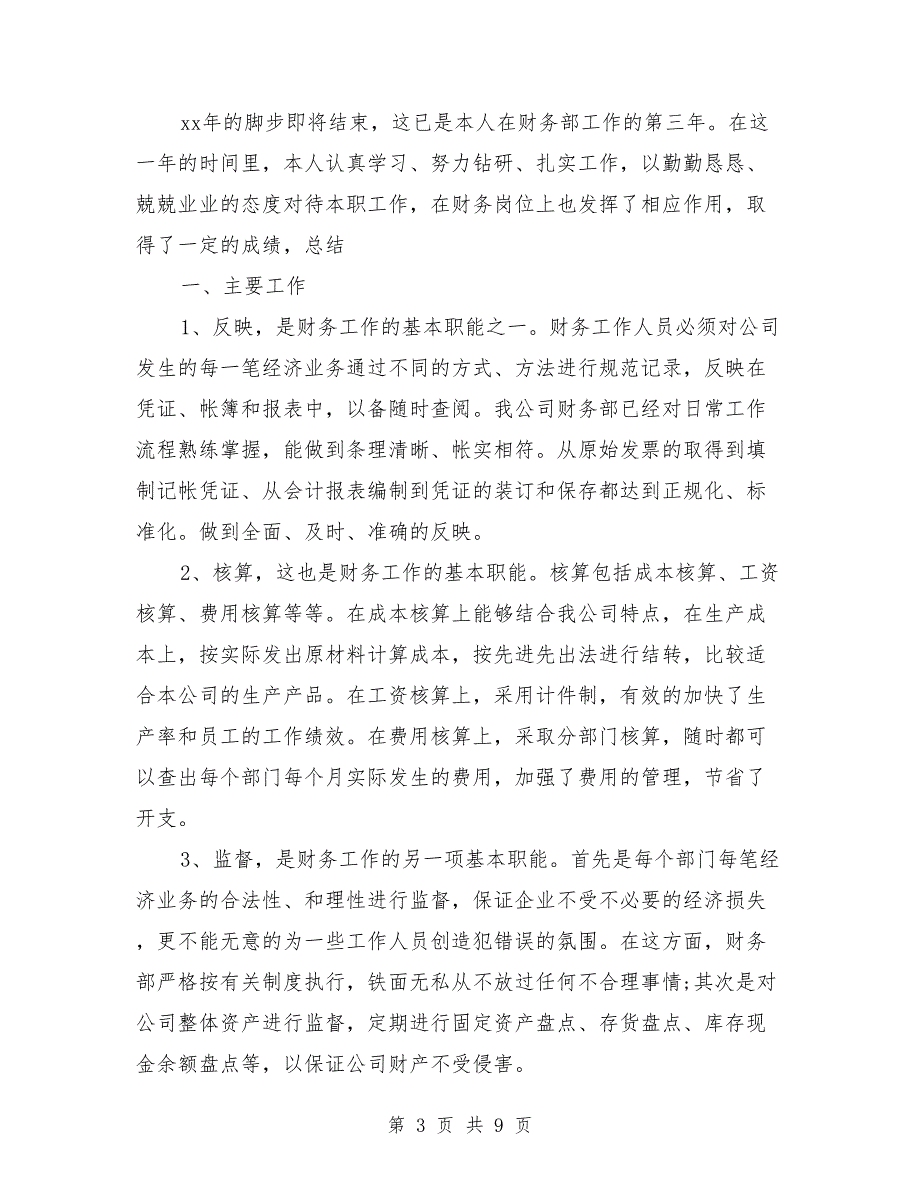 xx年的脚步即将结束，这已是本人在财务部工作的第三年。在这
一年的时间里，本人认真学习、努力钻研、扎实工作，以勤勤恳恳、
兢兢业业的态度对待本职工作，在财务岗位上也发挥了相应作用，取
得了一定的成绩，总结
一、主要工作
1、反映，是财务工作的基本职能之一。财务工作人员必须对公司
发生的每一笔经济业务通过不同的方式、方法进行规范记录，反映在
凭证、帐簿和报表中，以备随时查阅。我公司财务部已经对日常工作
流程熟练掌握，能做到条理清晰、帐实相符。从原始发票的取得到填
制记帐凭证、从会计报表编制到凭证的装订和保存都达到正规化、标
准化。做到全面、及时、准确的反映。
2、核算，这也是财务工作的基本职能。核算包括成本核算、工资
核算、费用核算等等。在成本核算上能够结合我公司特点，在生产成
本上，按实际发出原材料计算成本，按先进先出法进行结转，比较适
合本公司的生产产品。在工资核算上，采用计件制，有效的加快了生
产率和员工的工作绩效。在费用核算上，采取分部门核算，随时都可
以查出每个部门每个月实际发生的费用，加强了费用的管理，节省了
开支。
3、监督，是财务工作的另一项基本职能。首先是每个部门每笔经
济业务的合法性、和理性进行监督，保证企业不受不必要的经济损失
，更不能无意的为一些工作人员创造犯错误的氛围。在这方面，财务
部严格按有关制度执行，铁面无私从不放过任何不合理事情;其次是对
公司整体资产进行监督，定期进行固定资产盘点、存货盘点、库存现
金余额盘点等，以保证公司财产不受侵害。
第 3 页 共 9 页